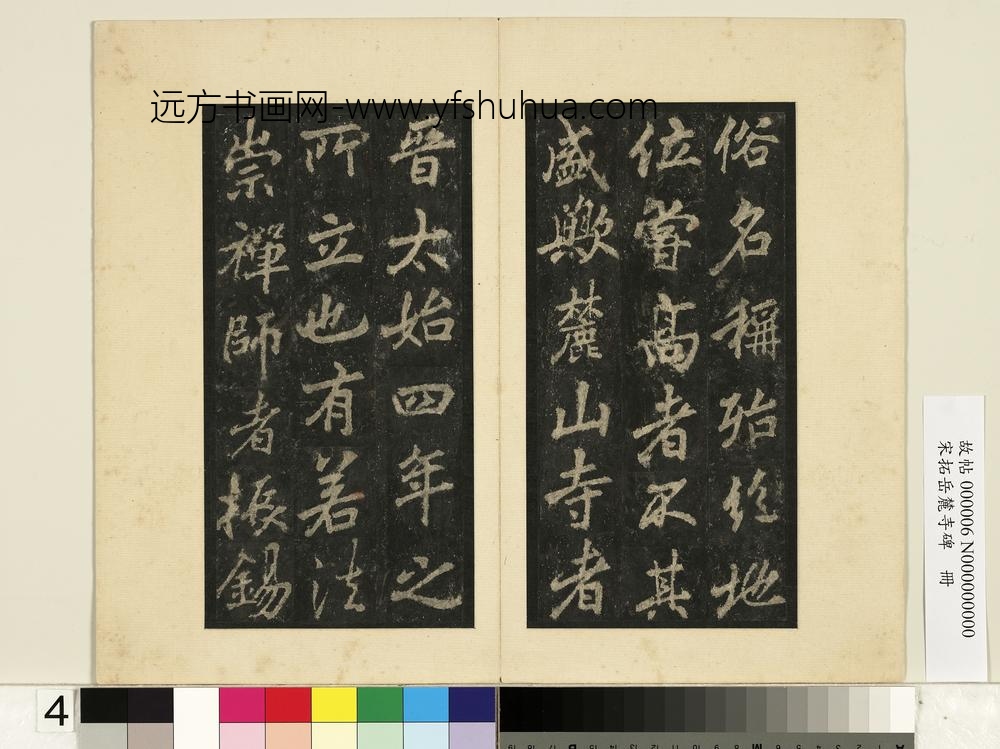 远方书画网-www.yfshuhua.com
俗名稱殆絶地
位嘗高者不其
盛歟麓山寺者
晉太始四年之
所立也有若法
崇禪師者振錫
故帖 000006 N000000000
宋拓岳麓寺碑 冊
4